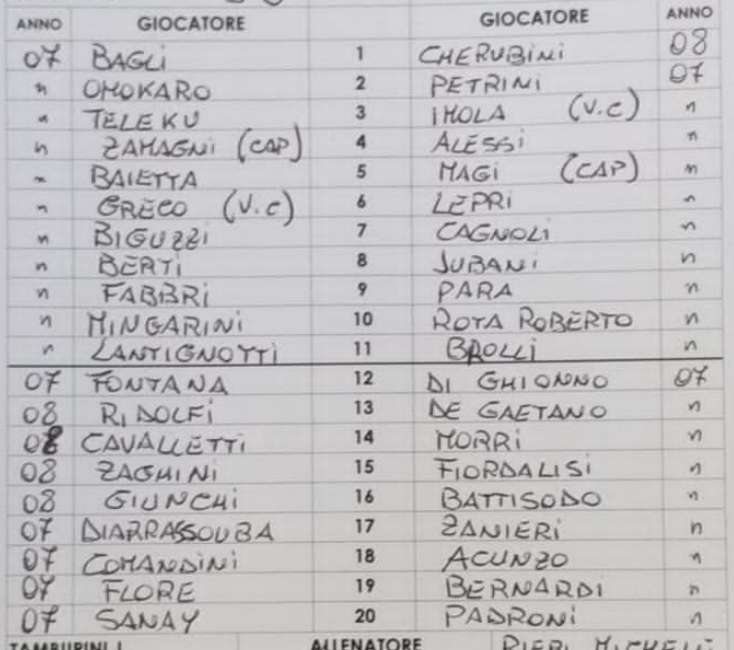 ANNO GIOCATORE GIOCATORE ANNO
07 BAGLI 1 CHERUBINI 08
" OMOKARO 2 PETRINI 07
" TELEKU 3 IMOLA (V.C) "
" ZAMAGNI (CAP) 4 ALESSI "
" BAIETTA 5 MAGI (CAP) "
" GRECO (V.C) 6 LEPRI "
" BIGUZZI 7 CAGNOLI "
" BERTI 8 JUBANI "
" FABBRI 9 PARA "
" MINGARINI 10 ROTA ROBERTO "
" LANTIGNOTTI 11 BROLLI "
07 FONTANA 12 DI GHIONNO 07
08 RIDOLFI 13 DE GAETANO "
08 CAVALLETTI 14 MORRI "
08 ZAGHINI 15 FIORDALISI "
08 GIUNCHI 16 BATTISODO "
07 DIARRASSOUBA 17 ZANIERI "
07 COMANDINI 18 ACUNZO "
07 FLORE 19 BERNARDI "
07 SANAY 20 PADRONI "
TAMBURINI ALLENATORE PIERI MICHELE